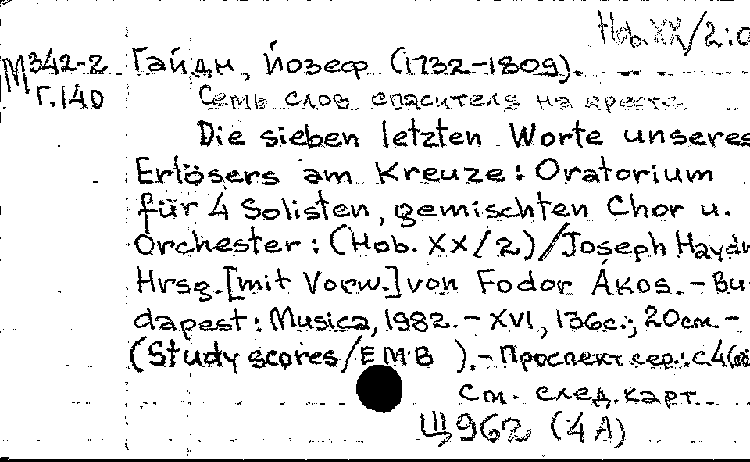 Hob. XX/2:0
М342-2 Гайдн, Йозеф (1732-1809).
Г.140 Семь слов спасителя на кресте
Die sieben letzten Worte unseres
Erlösers am Kreuze: Oratorium
für 4 Solisten, gemischten Chor u.
Orchester: (Hob. XX/2)/Joseph Haydn
Hrsg. [mit Vorw.] von Fodor Ákos. - Bu-
dapest: Musica, 1982. - XVI, 136 с.; 20 см. -
(Study scores/EMB ). - Проспект сер.: с.4(
см. след. карт
Щ962 (4А)